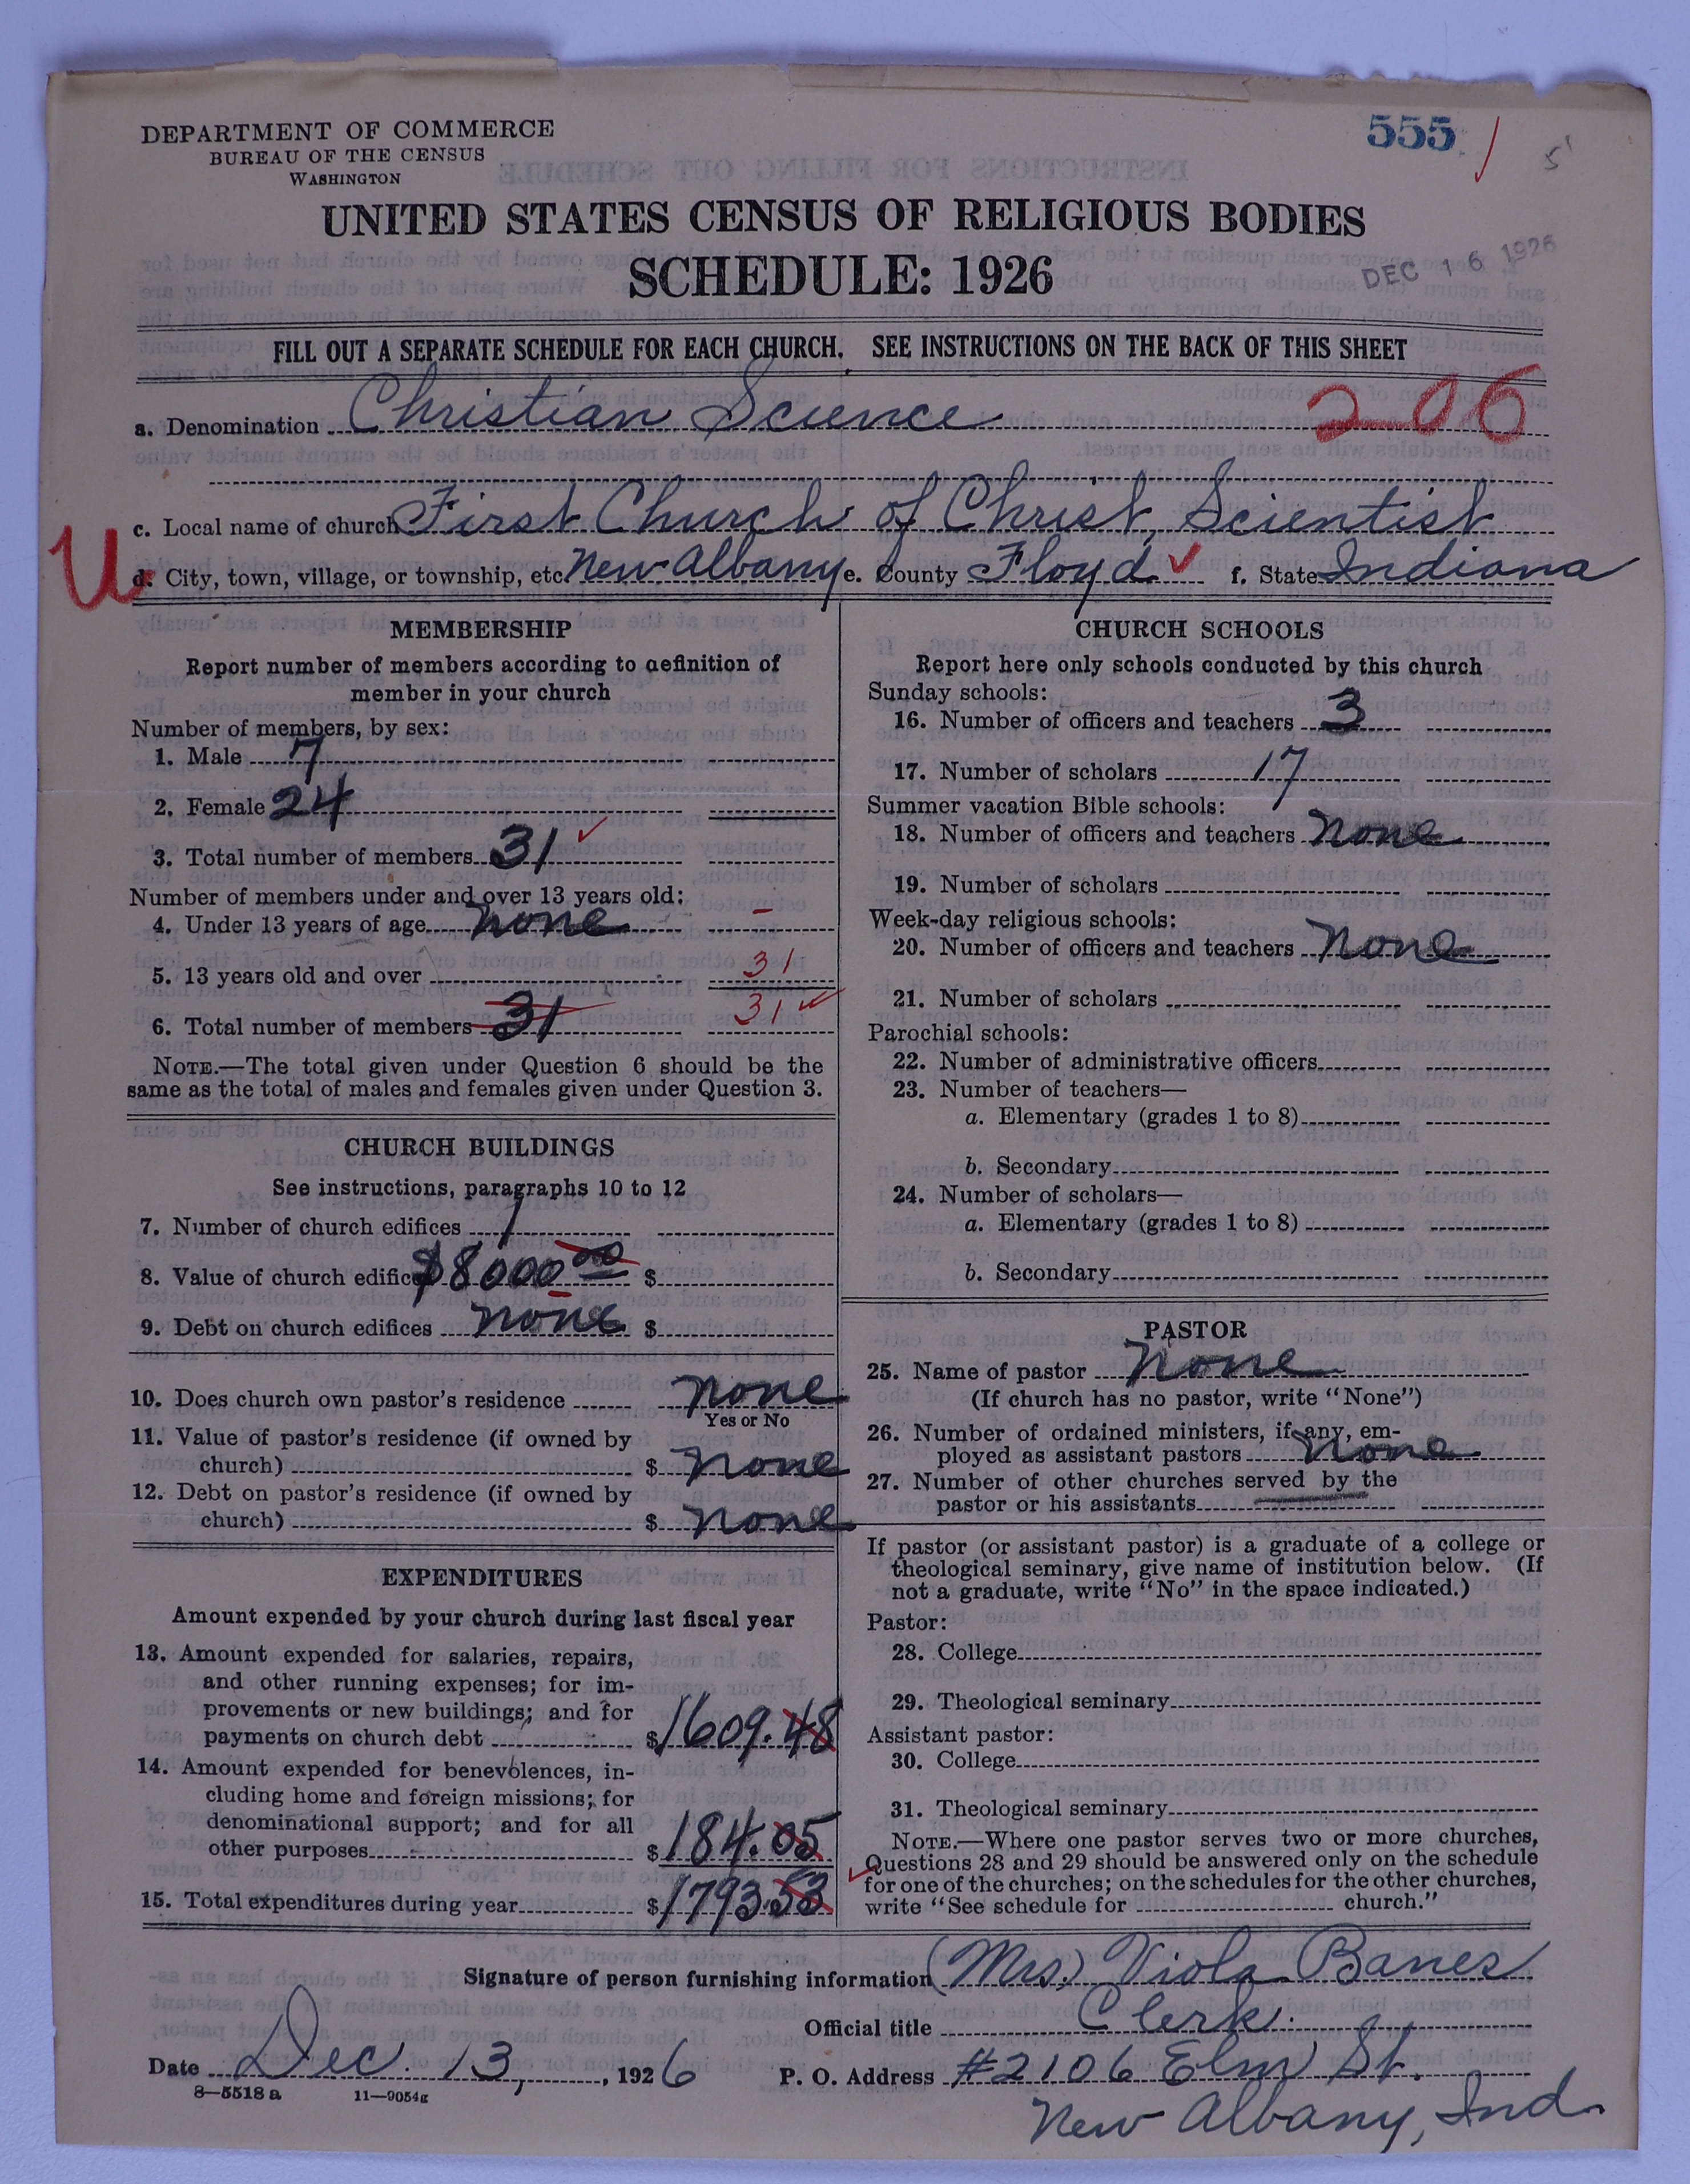 DEPARTMENT OF COMMERCE
BUREAU OF THE CENSUS
WASHINGTON
555
UNITED STATES CENSUS OF RELIGIOUS BODIES
SCHEDULE: 1926
DEC 16 1926
FILL OUT A SEPARATE SCHEDULE FOR EACH CHURCH. SEE INSTRUCTIONS ON THE BACK OF THIS SHEET
a. Denomination Christian Science 206
c. Local name of church First Church of Christ, Scientist
U
d. City, town, village, or township, etc. New Albany e. County Floyd f. State Indiana
MEMBERSHIP
Report number of members according to definition of
member in your church
Number of members, by sex:
1. Male 7
2. Female 24
3. Total number of members 31
Number of members under and over 13 years old:
4. Under 13 years of age none –
5. 13 years old and over 31
6. Total number of members 31 31
NOTE.—The total given under Question 6 should be the
same as the total of males and females given under Question 3.
CHURCH BUILDINGS
See instructions, paragraphs 10 to 12
7. Number of church edifices 1
8. Value of church edifices $8000 00 $
9. Debt on church edifices none $
10. Does church own pastor's residence none
Yes or No
11. Value of pastor's residence (if owned by
church) $ none
12. Debt on pastor's residence (if owned by
church) $ none
EXPENDITURES
Amount expended by your church during last fiscal year
13. Amount expended for salaries, repairs,
and other running expenses; for im-
provements or new buildings; and for
payments on church debt $1609.48
14. Amount expended for benevolences, in-
cluding home and foreign missions; for
denominational support; and for all
other purposes $184.05
15. Total expenditures during year $1793.53
CHURCH SCHOOLS
Report here only schools conducted by this church
Sunday schools:
16. Number of officers and teachers 3
17. Number of scholars 17
Summer vacation Bible schools:
18. Number of officers and teachers none
19. Number of scholars
Week-day religious schools:
20. Number of officers and teachers none
21. Number of scholars
Parochial schools:
22. Number of administrative officers
23. Number of teachers—
a. Elementary (grades 1 to 8)
b. Secondary
24. Number of scholars—
a. Elementary (grades 1 to 8)
b. Secondary
PASTOR
25. Name of pastor None
(If church has no pastor, write "None")
26. Number of ordained ministers, if any, em-
ployed as assistant pastors none
27. Number of other churches served by the
pastor or his assistants
If pastor (or assistant pastor) is a graduate of a college or
theological seminary, give name of institution below. (If
not a graduate, write "No" in the space indicated.)
Pastor:
28. College
29. Theological seminary
Assistant pastor:
30. College
31. Theological seminary
NOTE.—Where one pastor serves two or more churches,
Questions 28 and 29 should be answered only on the schedule
for one of the churches; on the schedules for the other churches,
write "See schedule for church."
Signature of person furnishing information (Mrs.) Viola Banes
Official title Clerk.
Date Dec. 13, 1926 P. O. Address #2106 Elm St.
8—5518 a 11—9054g
New Albany, Ind.